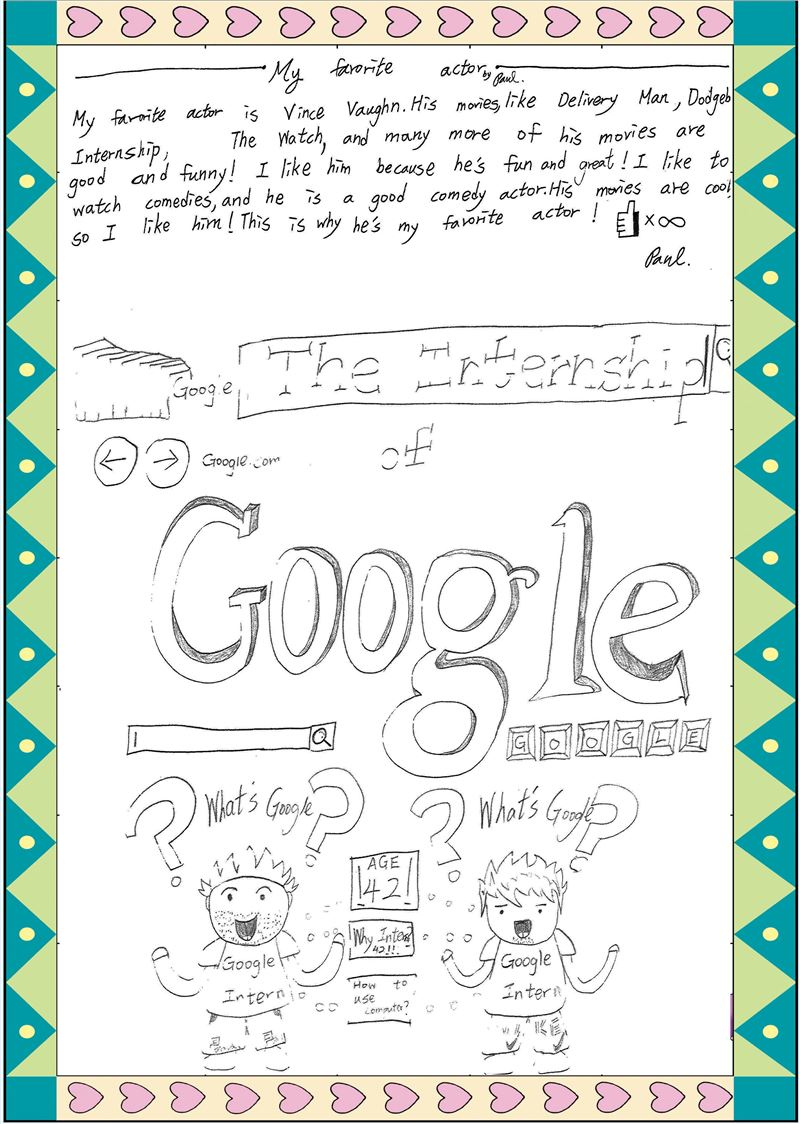 My favorite actor by Paul.
My favorite actor is Vince Vaughn. His movies, like Delivery Man, Dodgeb
Internship, The Watch, and many more of his movies are
good and funny! I like him because he's fun and great! I like to
watch comedies, and he is a good comedy actor. His movies are cool
so I like him! This is why he's my favorite actor! x∞
Paul.
Google The Internship
Google.com of
Google
GOOGLE
What's Google? What's Google?
AGE
42!
Why Intern?
42!!
How to
use
computer?
Google
Intern
Google
Intern